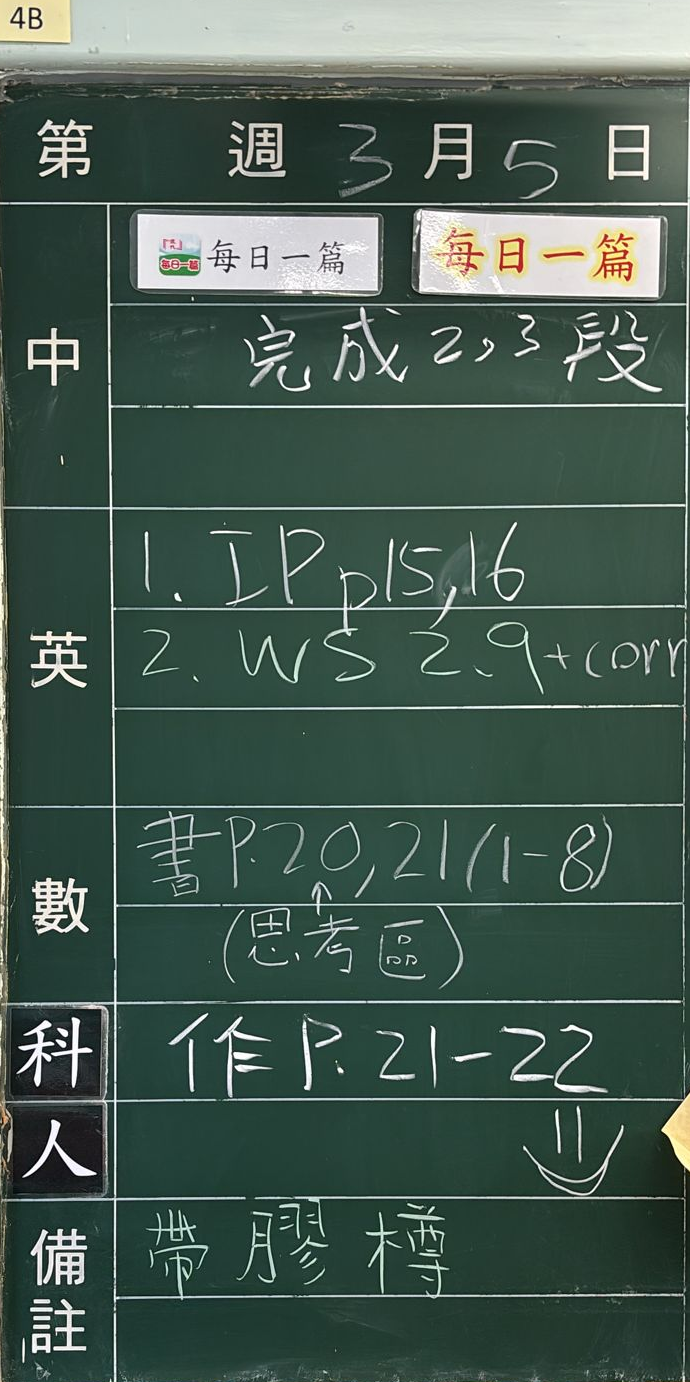 4B
第 週 3 月 5 日
中
每日一篇 每日一篇
完成2,3段
英
1. IP p15,16
2. WS 2.9+corr
數
書P.20,21(1-8)
↑
(思考區)
科 作P.21-22
人
備註
帶膠樽